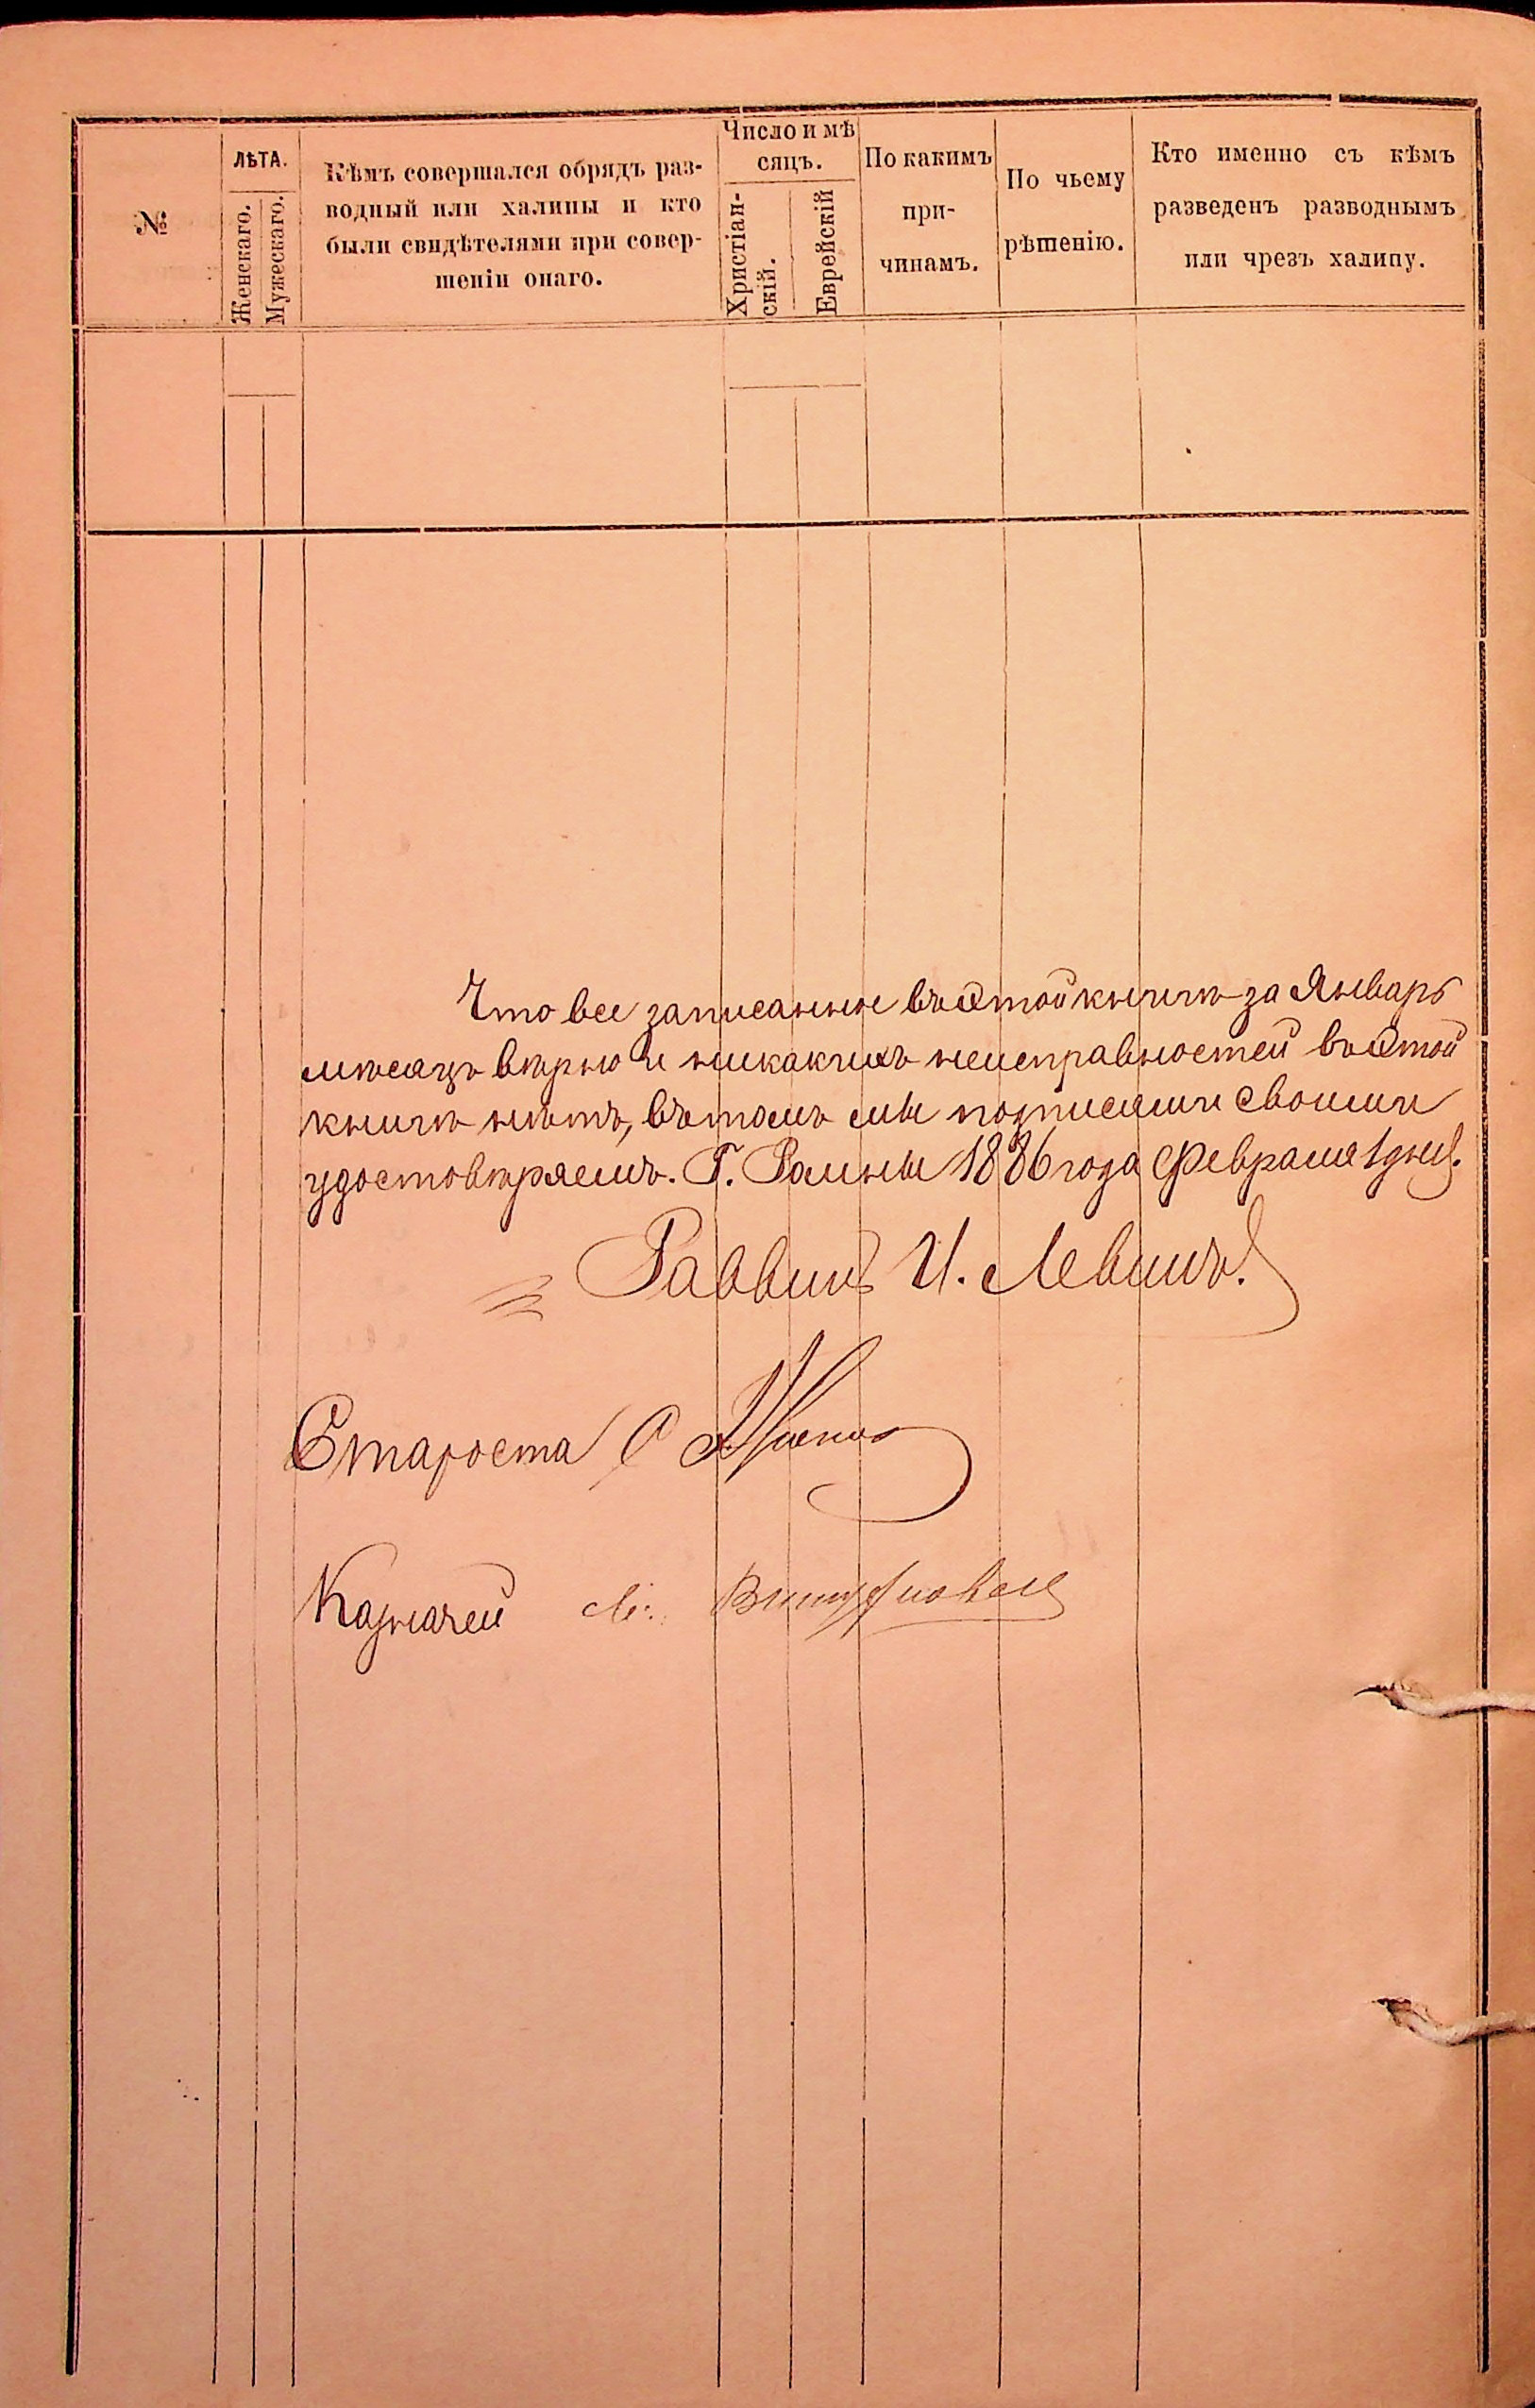 №
ЛѢТА.
Женскаго.
Мужескаго.
Кѣмъ совершался обрядъ раз-
водный или халицы и кто
были свидѣтелями при совер-
шеніи онаго.
Число и мѣ
сяцъ.
Христіан-
скій.
Еврейскій
По какимъ
при-
чинамъ.
По чьему
рѣшенію.
Кто именно съ кѣмъ
разведенъ разводнымъ
или чрезъ халицу.
Что все записанные въ этой книги за Январь
мѣсяцъ вѣрно и никакихъ неисправностей въ этой
книгѣ нѣтъ, въ томъ мы подписями своими
удостовѣряемъ. Г. Ромны 1886 года Февраля 1 дня.
Раввинъ И. Левинъ.
Староста С
Казначей